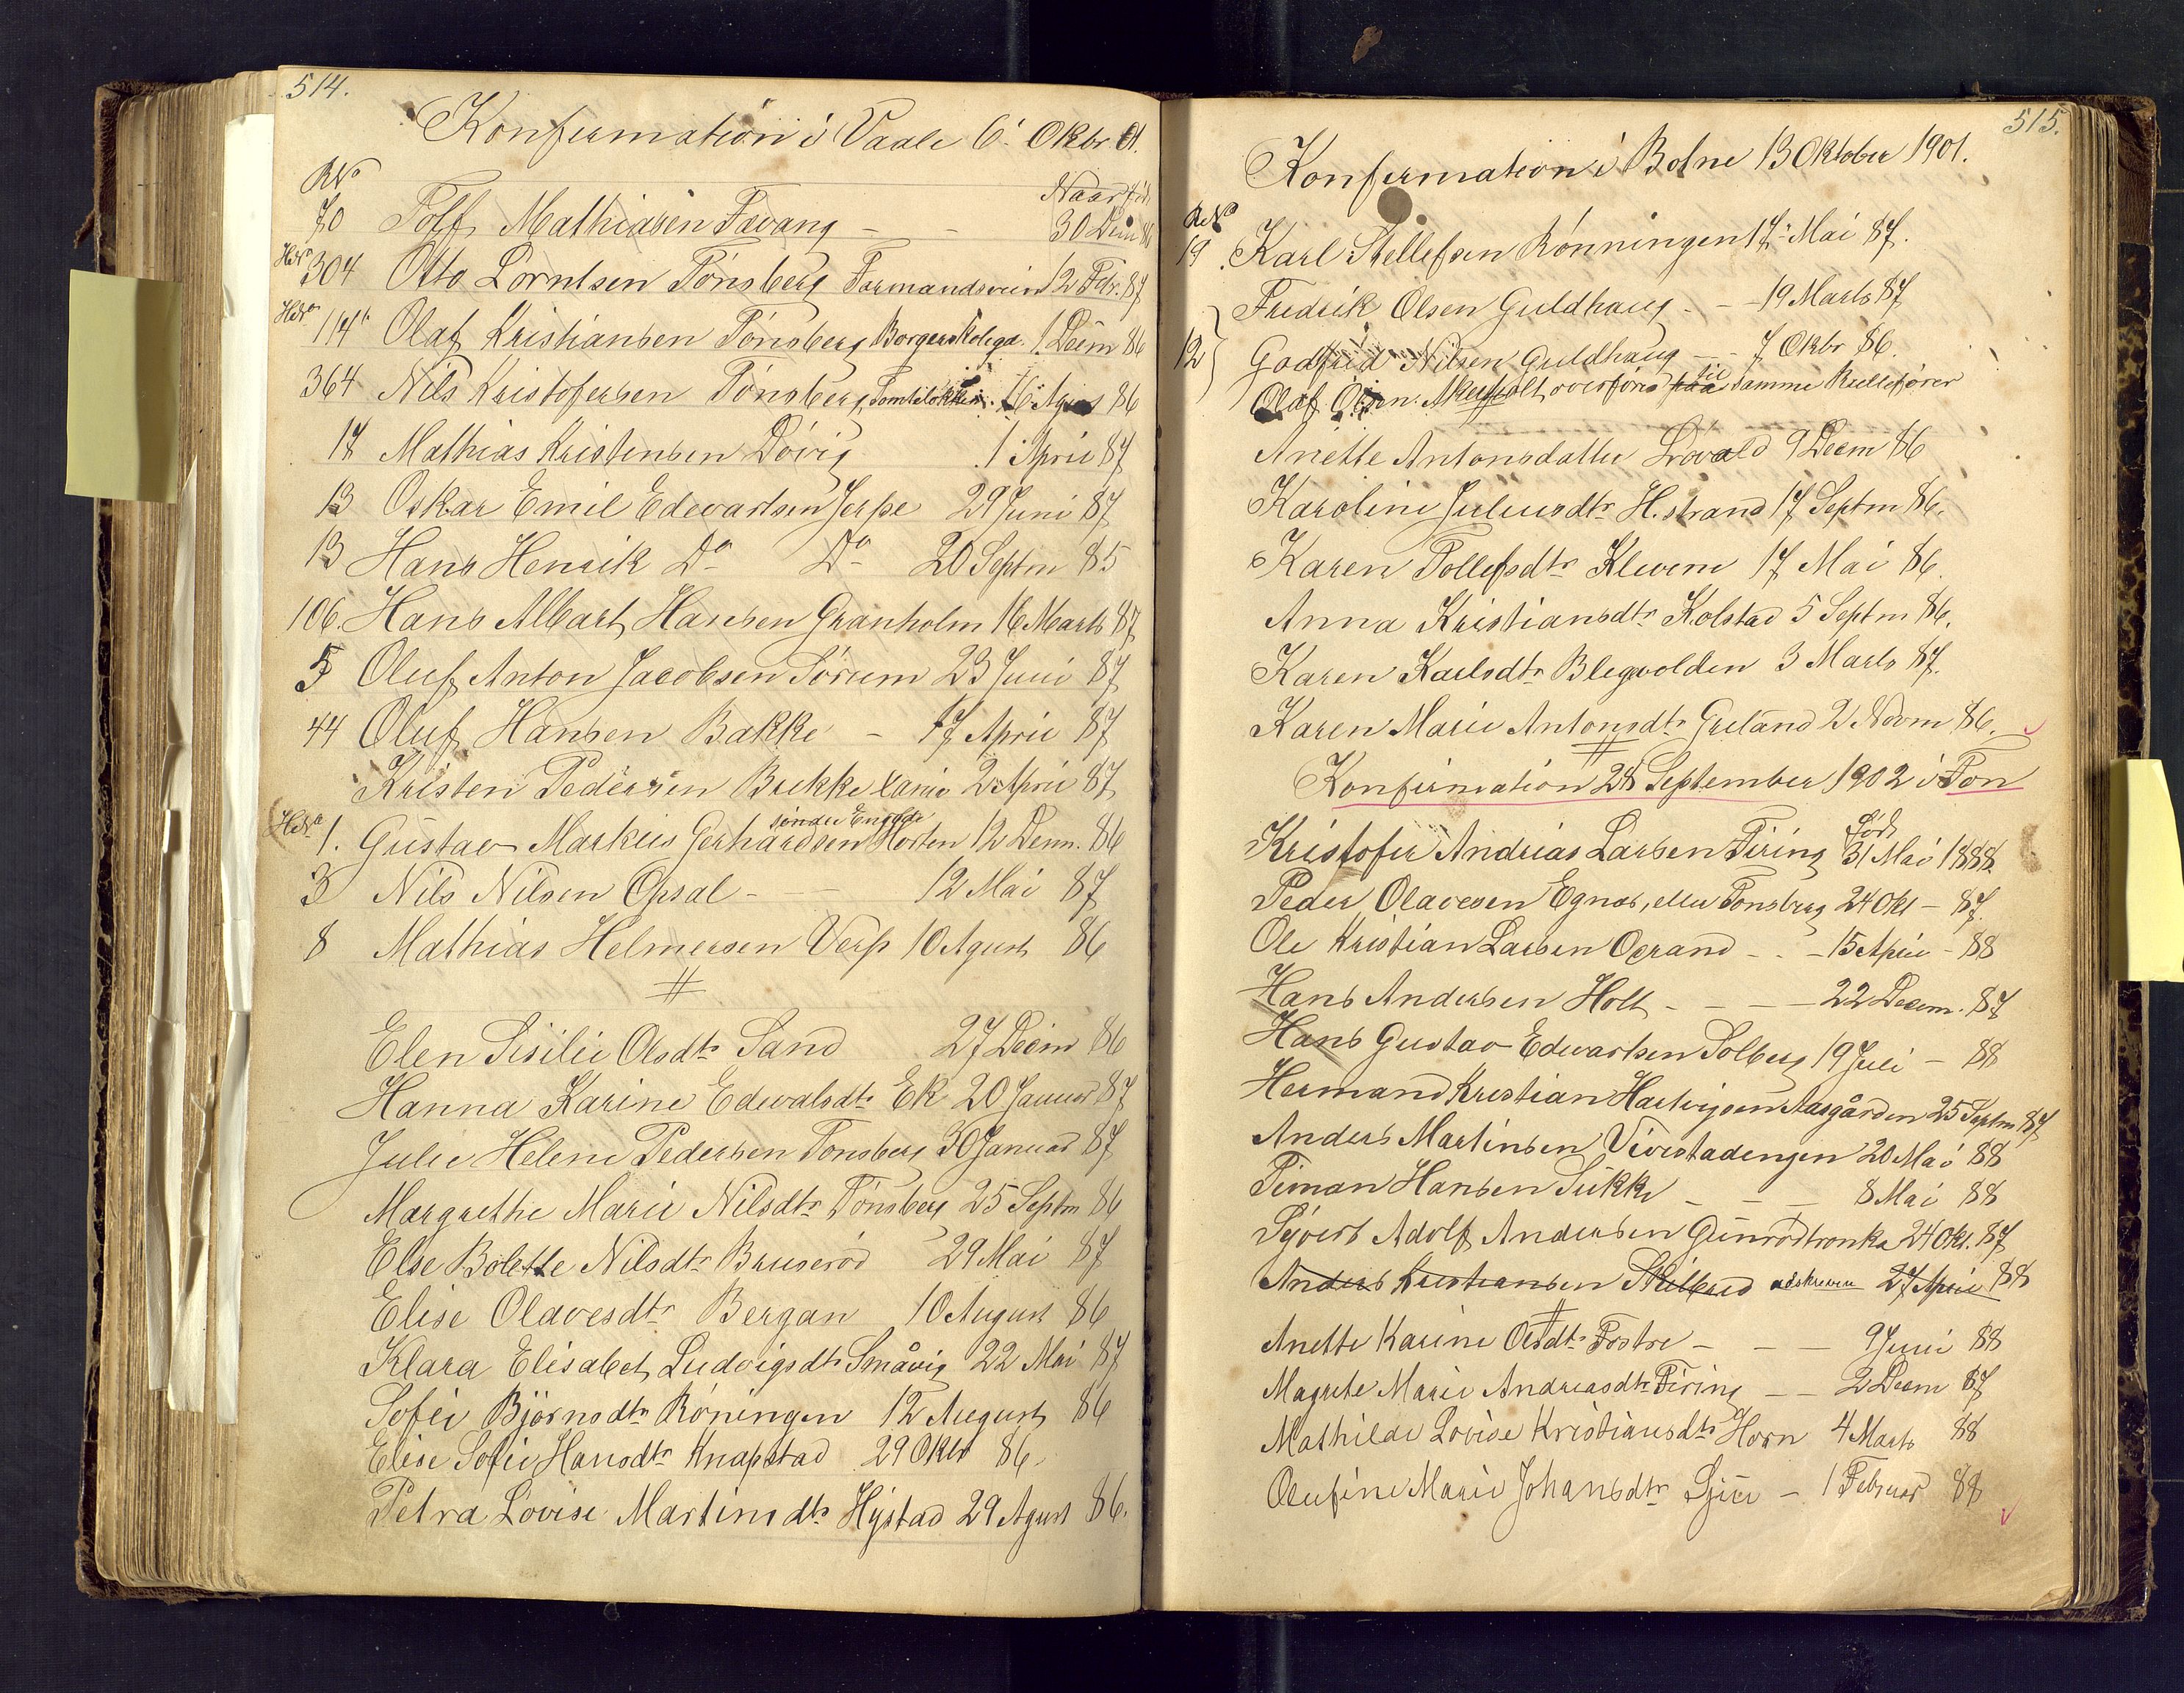 514.
Konfirmation i Vaale 6. Oktbr. 01.
RNo
Naar født
70 Tolf Mathiasen Tavang - - 30 Decm 86
HdNo 304 Otto Lorntsen Tønsberg Formandsveien 12 Febr. 87
HdNo 114b Olaf Kristiansen Tønsberg Borgerskolegd. 1. Decm 86
364 Nils Kristofersen Tønsberg, Tomteløkken. 26 Agust 86
17 Mathias Kristensen Døvig 1 April 87
13 Oskar Emil Edevartsen Jerpe 29 Juni 87
13 Hans Henrik Do Do 20 Septm 85
106. Hans Albart Hansen Granholm 16 Marts 87
5 Oluf Anton Jacobsen Sørum 23 Juni 87
44 Oluf Hansen Bakke - 17 April 87
Kristen Pedersen Brekke 2 April 87
søndre Engene
HdNo 1. Gustav Markus Gerhardsen Horten 12 Decm. 86
3 Nils Nilsen Opsal - - 12 Mai 87
8 Mathias Helmersen Verp 10 Agust 86
#
Elen Sisilie Olsdtr Sand 27 Decm 86
Hanna Karine Edvalsdtr Ek 20 Januar 87
Julie Helene Pedersen Tønsberg 30 Januar 87
Margrethe Marie Nilsdtr Tønsberg 25 Septm 86
Else Bolette Nilsdtr Bruserød 29 Mai 87
Elise Olavesdtr Bergan 10 August 86
Klara Elisabet Ludvigsdtr Småvig 22 Mai 87
Sofie Bjørnsdtr Røningen 12 August 86
Elise Sofie Hansdtr Knapstad 29 Oktbr 86.
Petra Lovise Martinsdtr Hystad 29 Agust 86.
515.
Konfirmation i Botne 13 Oktober 1901.
RNo
19. Karl Stellefsen Rønningen 17. Mai 87.
Fredrik Olsen Guldhaug - - 19 Marts 87
12 Godfred Nilsen Guldhaug - - 7 Oktbr 86.
til
Olaf Olsen Akersholt overføres paa samme Rullefører
Anette Antonsdatter Løvald 9 Decm 86
Karoline Juliusdtr H.strand 17 Septm 86.
Karen Tollefsdtr Klevene 17 Mai 86.
Anna Kristiansdtr Kolstad 5 Septm 86.
Karen Karlsdtr Blegvolden 3 Marts 87.
Karen Marie Antonsdtr Greland 2 Novm 86.
#
Konfirmation 28 September 1902 i Fon
Født
Kristofer Andreas Larsen Firing 31 Mai 1888.
Peder Olavesen Egnes, eller Tønsberg 24 Okt - 87.
Ole Kristian Larsen Ocrand - - - 15 April - 88
Hans Andersen Holt - - - 22 Decem. 87
Hans Gustav Edvartsen Solberg 19 Juli - 88
Hermand Kristian Hartvigsen Aasgården 25 Septm 87
Anders Martinsen Vivestadengen 20 Mai 88
Timan Hansen Sukke - - - 8 Mai 88
Syvert Adolf Andersen Gunrødtronka 24 Okt. 87
Anders Kristiansen Skilbred udskreven 27 April 88
#
Anette Karine Olsdtr Fostre - - - 9 Juni 88
Magrete Marie Andreasdtr Firing - - 2 Decm 87
Mathilde Lovise Kristiansdtr Horn 4 Marts 88
Olufine Marie Johansdtr Ljiu - 1 Februar 88